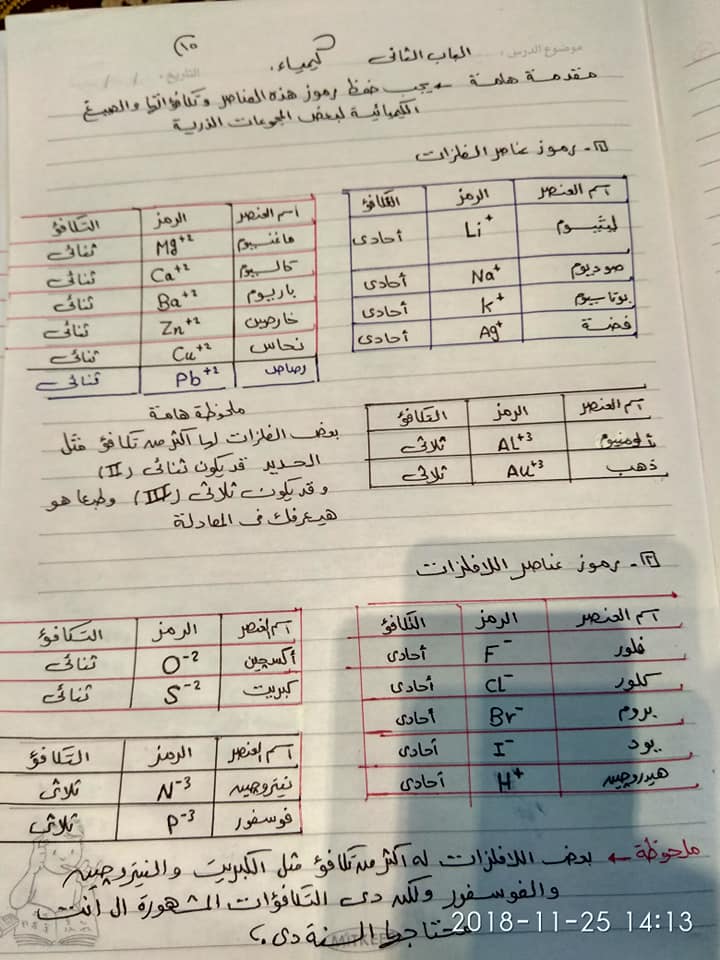 موضوع الدرس:
الباب الثانى
كيمياء.
التاريخ:
مقدمة هامة ← يجب حفظ رموز هذه العناصر وتكافؤاتها والصيغ
الكيميائية لبعض المجموعات الذرية
١- رموز عناصر الفلزات
اسم العنصر | الرمز | التكافؤ
ليثيوم | Li⁺ | أحادى
صوديوم | Na⁺ | أحادى
بوتاسيوم | K⁺ | أحادى
فضة | Ag⁺ | أحادى
اسم العنصر | الرمز | التكافؤ
ماغنسيوم | Mg⁺² | ثنائى
كالسيوم | Ca⁺² | ثنائى
باريوم | Ba⁺² | ثنائى
خارصين | Zn⁺² | ثنائى
نحاس | Cu⁺² | ثنائى
رصاص | Pb⁺² | ثنائى
اسم العنصر | الرمز | التكافؤ
ألومنيوم | AL⁺³ | ثلاثى
ذهب | Au⁺³ | ثلاثى
ملحوظة هامة
بعض الفلزات لها أكثر من تكافؤ مثل
الحديد قد يكون ثنائى (II)
وقد يكون ثلاثى (III) وطبعا هو
هيعرفك فى المعادلة
٢- رموز عناصر اللافلزات
اسم العنصر | الرمز | التكافؤ
فلور | F⁻ | أحادى
كلور | CL⁻ | أحادى
بروم | Br⁻ | أحادى
يود | I⁻ | أحادى
هيدروجين | H⁺ | أحادى
اسم العنصر | الرمز | التكافؤ
أكسجين | O⁻² | ثنائى
كبريت | S⁻² | ثنائى
اسم العنصر | الرمز | التكافؤ
نيتروجين | N⁻³ | ثلاثى
فوسفور | P⁻³ | ثلاثى
ملحوظة ← بعض اللافلزات له أكثر من تكافؤ مثل الكبريت والنيتروجين
والفوسفور ولكن دى التكافؤات المشهورة ال أنت
هتحتاجها السنة دى.
2018-11-25 14:13